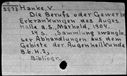 Hanke, V.
Die Berufs oder Gewerbe
Erkrankungen des Auges.
Halle a.S., Marhold, 1904.
14 s. Sammlung zwangl.
ser Abhandlungen aus dem
Gebiete der Augenheilkunde
Bd.
Bibliogr.